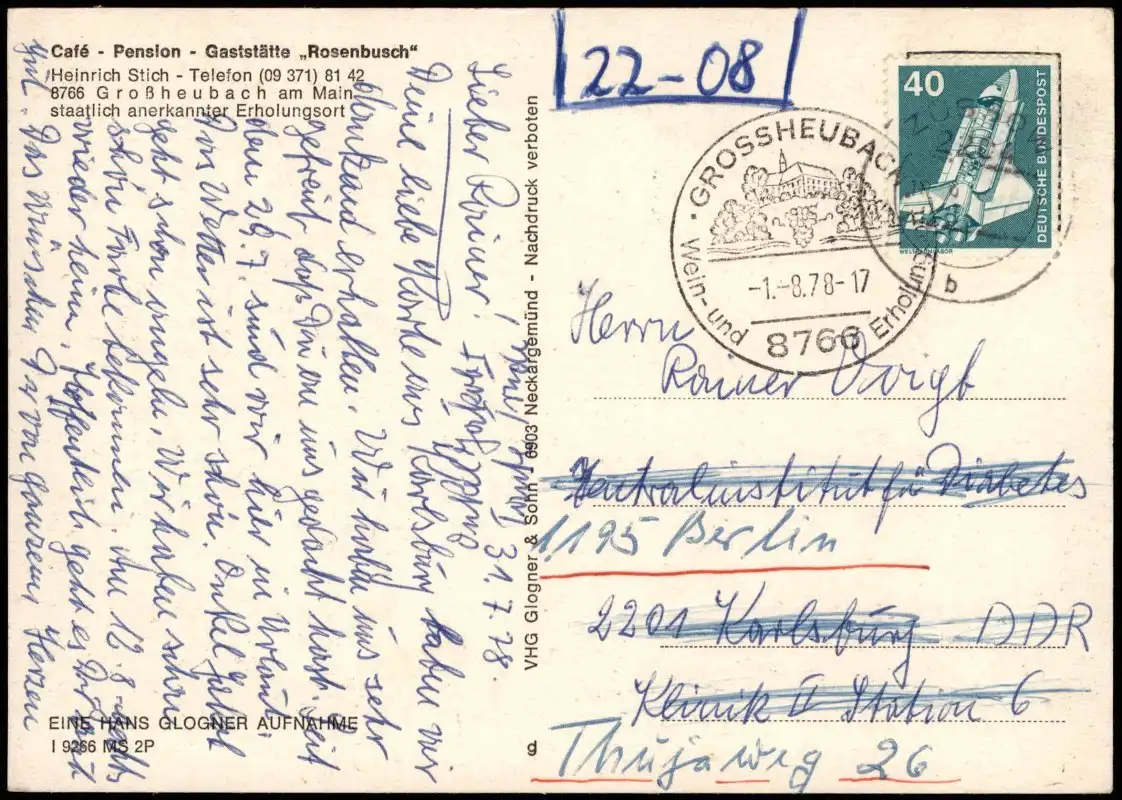 Café - Pension - Gaststätte „Rosenbusch“
Heinrich Stich - Telefon (09 371) 81 42
8766 Großheubach am Main
staatlich anerkannter Erholungsort
31. 7. 78.
Lieber Rainer!
Deine liebe Karte aus Karlsburg haben wir
dankend erhalten. Wir haben uns sehr
gefreut, daß Du an uns gedacht hast. Seit
den 29. 7. sind wir hier in Urlaub.
Das Wetter ist sehr schön. Onkel
geht schon angeln. Wir haben schon
schön Farbe bekommen. Am 12. 8. geht's
wieder heim. Hoffentlich geht es Dir
gut. Das wünschen Dir von ganzem Herzen
EINE HANS GLOGNER AUFNAHME
I 9266 MS 2P
VHG Glogner & Sohn - 6903 Neckargemünd - Nachdruck verboten
g
22-08
40
DEUTSCHE BUNDESPOST
WELTRAUMLABOR
GROSSHEUBACH
-1.-8.78-17
8766
Wein- und Erholungs
b
Herrn
Rainer Voigt
Zentralinstitut für Diabetes
1195 Berlin
2201 Karlsburg DDR
Klinik II Station 6
Thujaweg 26